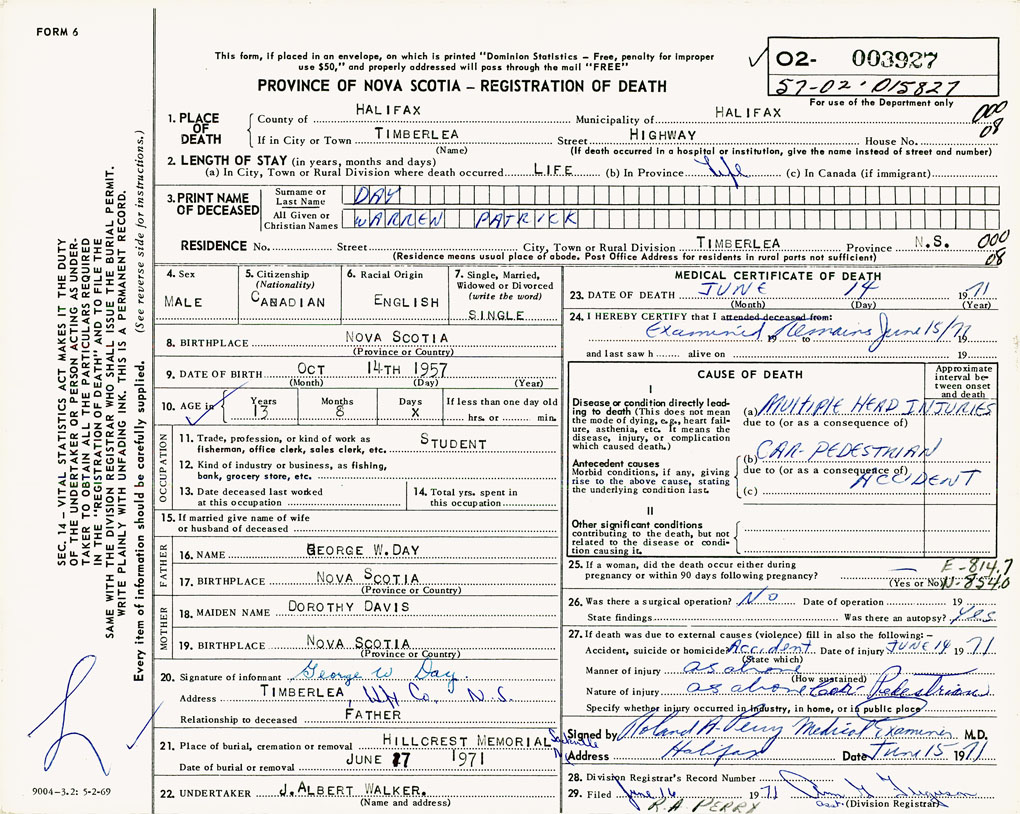 FORM 6
This form, if placed in an envelope, on which is printed "Dominion Statistics – Free, penalty for improper
use $50," and properly addressed will pass through the mail "FREE"
PROVINCE OF NOVA SCOTIA – REGISTRATION OF DEATH
02- 003927
57-02-015827
For use of the Department only
1. PLACE OF DEATH
County of HALIFAX Municipality of HALIFAX 000
If in City or Town TIMBERLEA Street HIGHWAY House No. 08
(Name) (If death occurred in a hospital or institution, give the name instead of street and number)
2. LENGTH OF STAY (in years, months and days)
(a) In City, Town or Rural Division where death occurred LIFE (b) In Province Life (c) In Canada (if immigrant)
3. PRINT NAME OF DECEASED
Surname or Last Name DAY
All Given or Christian Names WARREN PATRICK
RESIDENCE No. Street City, Town or Rural Division TIMBERLEA Province N.S. 000
(Residence means usual place of abode. Post Office Address for residents in rural parts not sufficient) 08
4. Sex
MALE
5. Citizenship
(Nationality)
CANADIAN
6. Racial Origin
ENGLISH
7. Single, Married,
Widowed or Divorced
(write the word)
SINGLE
8. BIRTHPLACE NOVA SCOTIA
(Province or Country)
9. DATE OF BIRTH OCT 14TH 1957
(Month) (Day) (Year)
10. AGE in Years Months Days If less than one day old
13 8 X hrs. or min.
OCCUPATION
11. Trade, profession, or kind of work as STUDENT
fisherman, office clerk, sales clerk, etc.
12. Kind of industry or business, as fishing,
bank, grocery store, etc.
13. Date deceased last worked
at this occupation
14. Total yrs. spent in
this occupation
15. If married give name of wife
or husband of deceased
FATHER
16. NAME GEORGE W. DAY
17. BIRTHPLACE NOVA SCOTIA
(Province or Country)
MOTHER
18. MAIDEN NAME DOROTHY DAVIS
19. BIRTHPLACE NOVA SCOTIA
(Province or Country)
20. Signature of informant George W Day
Address TIMBERLEA, Hfx Co. N.S.
Relationship to deceased FATHER
21. Place of burial, cremation or removal HILLCREST MEMORIAL Sackville
Date of burial or removal JUNE 17 1971
22. UNDERTAKER J. ALBERT WALKER.
(Name and address)
MEDICAL CERTIFICATE OF DEATH
23. DATE OF DEATH JUNE 14 1971
(Month) (Day) (Year)
24. I HEREBY CERTIFY that I attended deceased from:
Examined Remains June 15/71
19 19
and last saw h alive on 19
CAUSE OF DEATH
Approximate
interval be-
tween onset
and death
I
Disease or condition directly lead-
ing to death (This does not mean
the mode of dying, e.g., heart fail-
ure, asthenia, etc. It means the
disease, injury, or complication
which caused death.)
(a) MULTIPLE HEAD INJURIES
due to (or as a consequence of)
Antecedent causes
Morbid conditions, if any, giving
rise to the above cause, stating
the underlying condition last.
(b) CAR-PEDESTRIAN
due to (or as a consequence of)
ACCIDENT
(c)
II
Other significant conditions
contributing to the death, but not
related to the disease or condi-
tion causing it.
25. If a woman, did the death occur either during
pregnancy or within 90 days following pregnancy? —
(Yes or No)
E-814.7
N-854.0
26. Was there a surgical operation? No Date of operation 19
State findings Was there an autopsy? Yes
27. If death was due to external causes (violence) fill in also the following: –
Accident, suicide or homicide Accident Date of injury JUNE 14 1971
(State which)
Manner of injury as above
(How sustained)
Nature of injury as above Car-Pedestrian
Specify whether injury occurred in industry, in home, or in public place
Signed by Roland A. Perry Medical Examiner M.D.
Address Halifax Date June 15 1971
28. Division Registrar's Record Number
29. Filed June 16 1971
R.A. PERRY (Division Registrar)
SEC. 14 – VITAL STATISTICS ACT MAKES IT THE DUTY
OF THE UNDERTAKER OR PERSON ACTING AS UNDER-
TAKER TO OBTAIN ALL THE PARTICULARS REQUIRED
IN THE "REGISTRATION OF DEATH" AND TO FILE THE
SAME WITH THE DIVISION REGISTRAR WHO SHALL ISSUE THE BURIAL PERMIT.
WRITE PLAINLY WITH UNFADING INK. THIS IS A PERMANENT RECORD.
Every item of information should be carefully supplied. (See reverse side for instructions.)
9004-3.2: 5-2-69